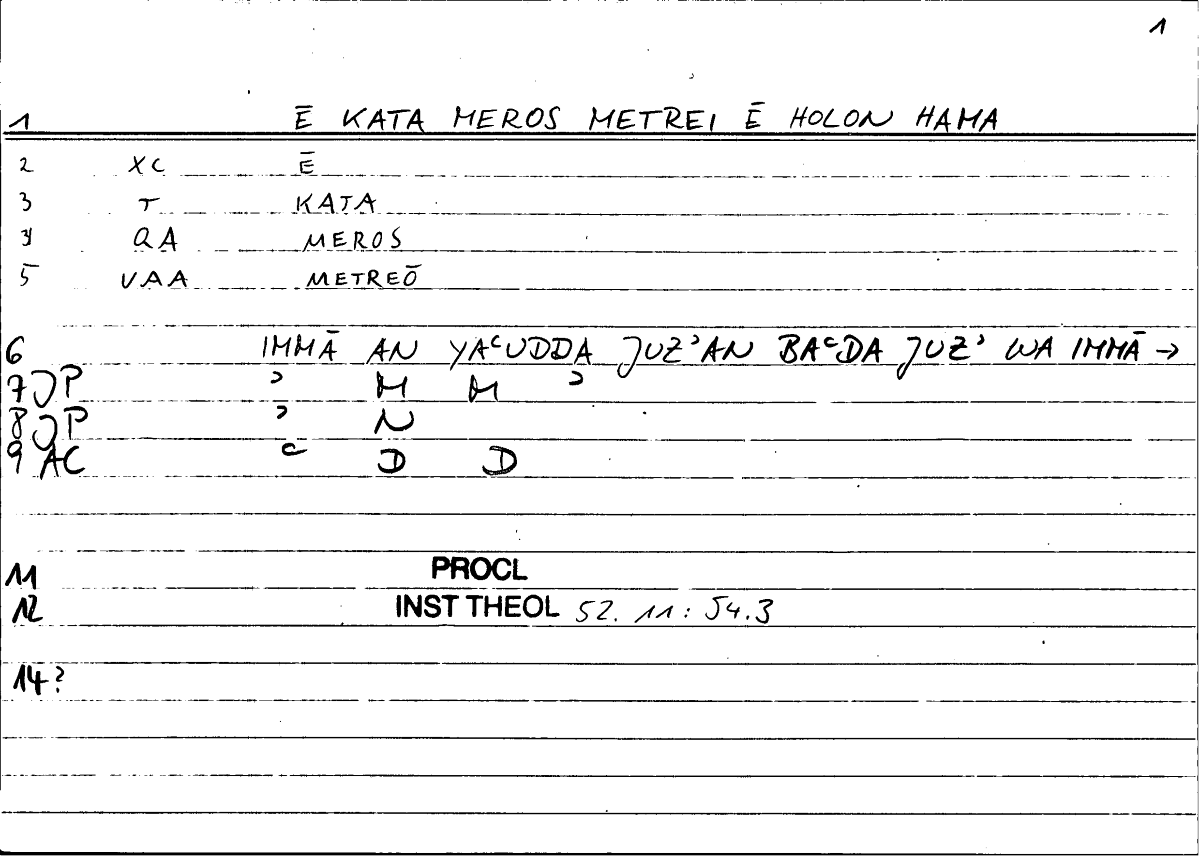 1
1 Ē KATA MEROS METREI Ē HOLON HAMA
2 XC Ē
3 T KATA
4 QA MEROS
5 VAA METREŌ
6 IMMĀ AN YAᶜUDDA JUZʾAN BAᶜDA JUZʾ WA IMMĀ →
7 JP ʾ M M ʾ
8 JP ʾ N
9 AC ᶜ D D
11 PROCL
12 INST THEOL 52. 11: 54.3
14?